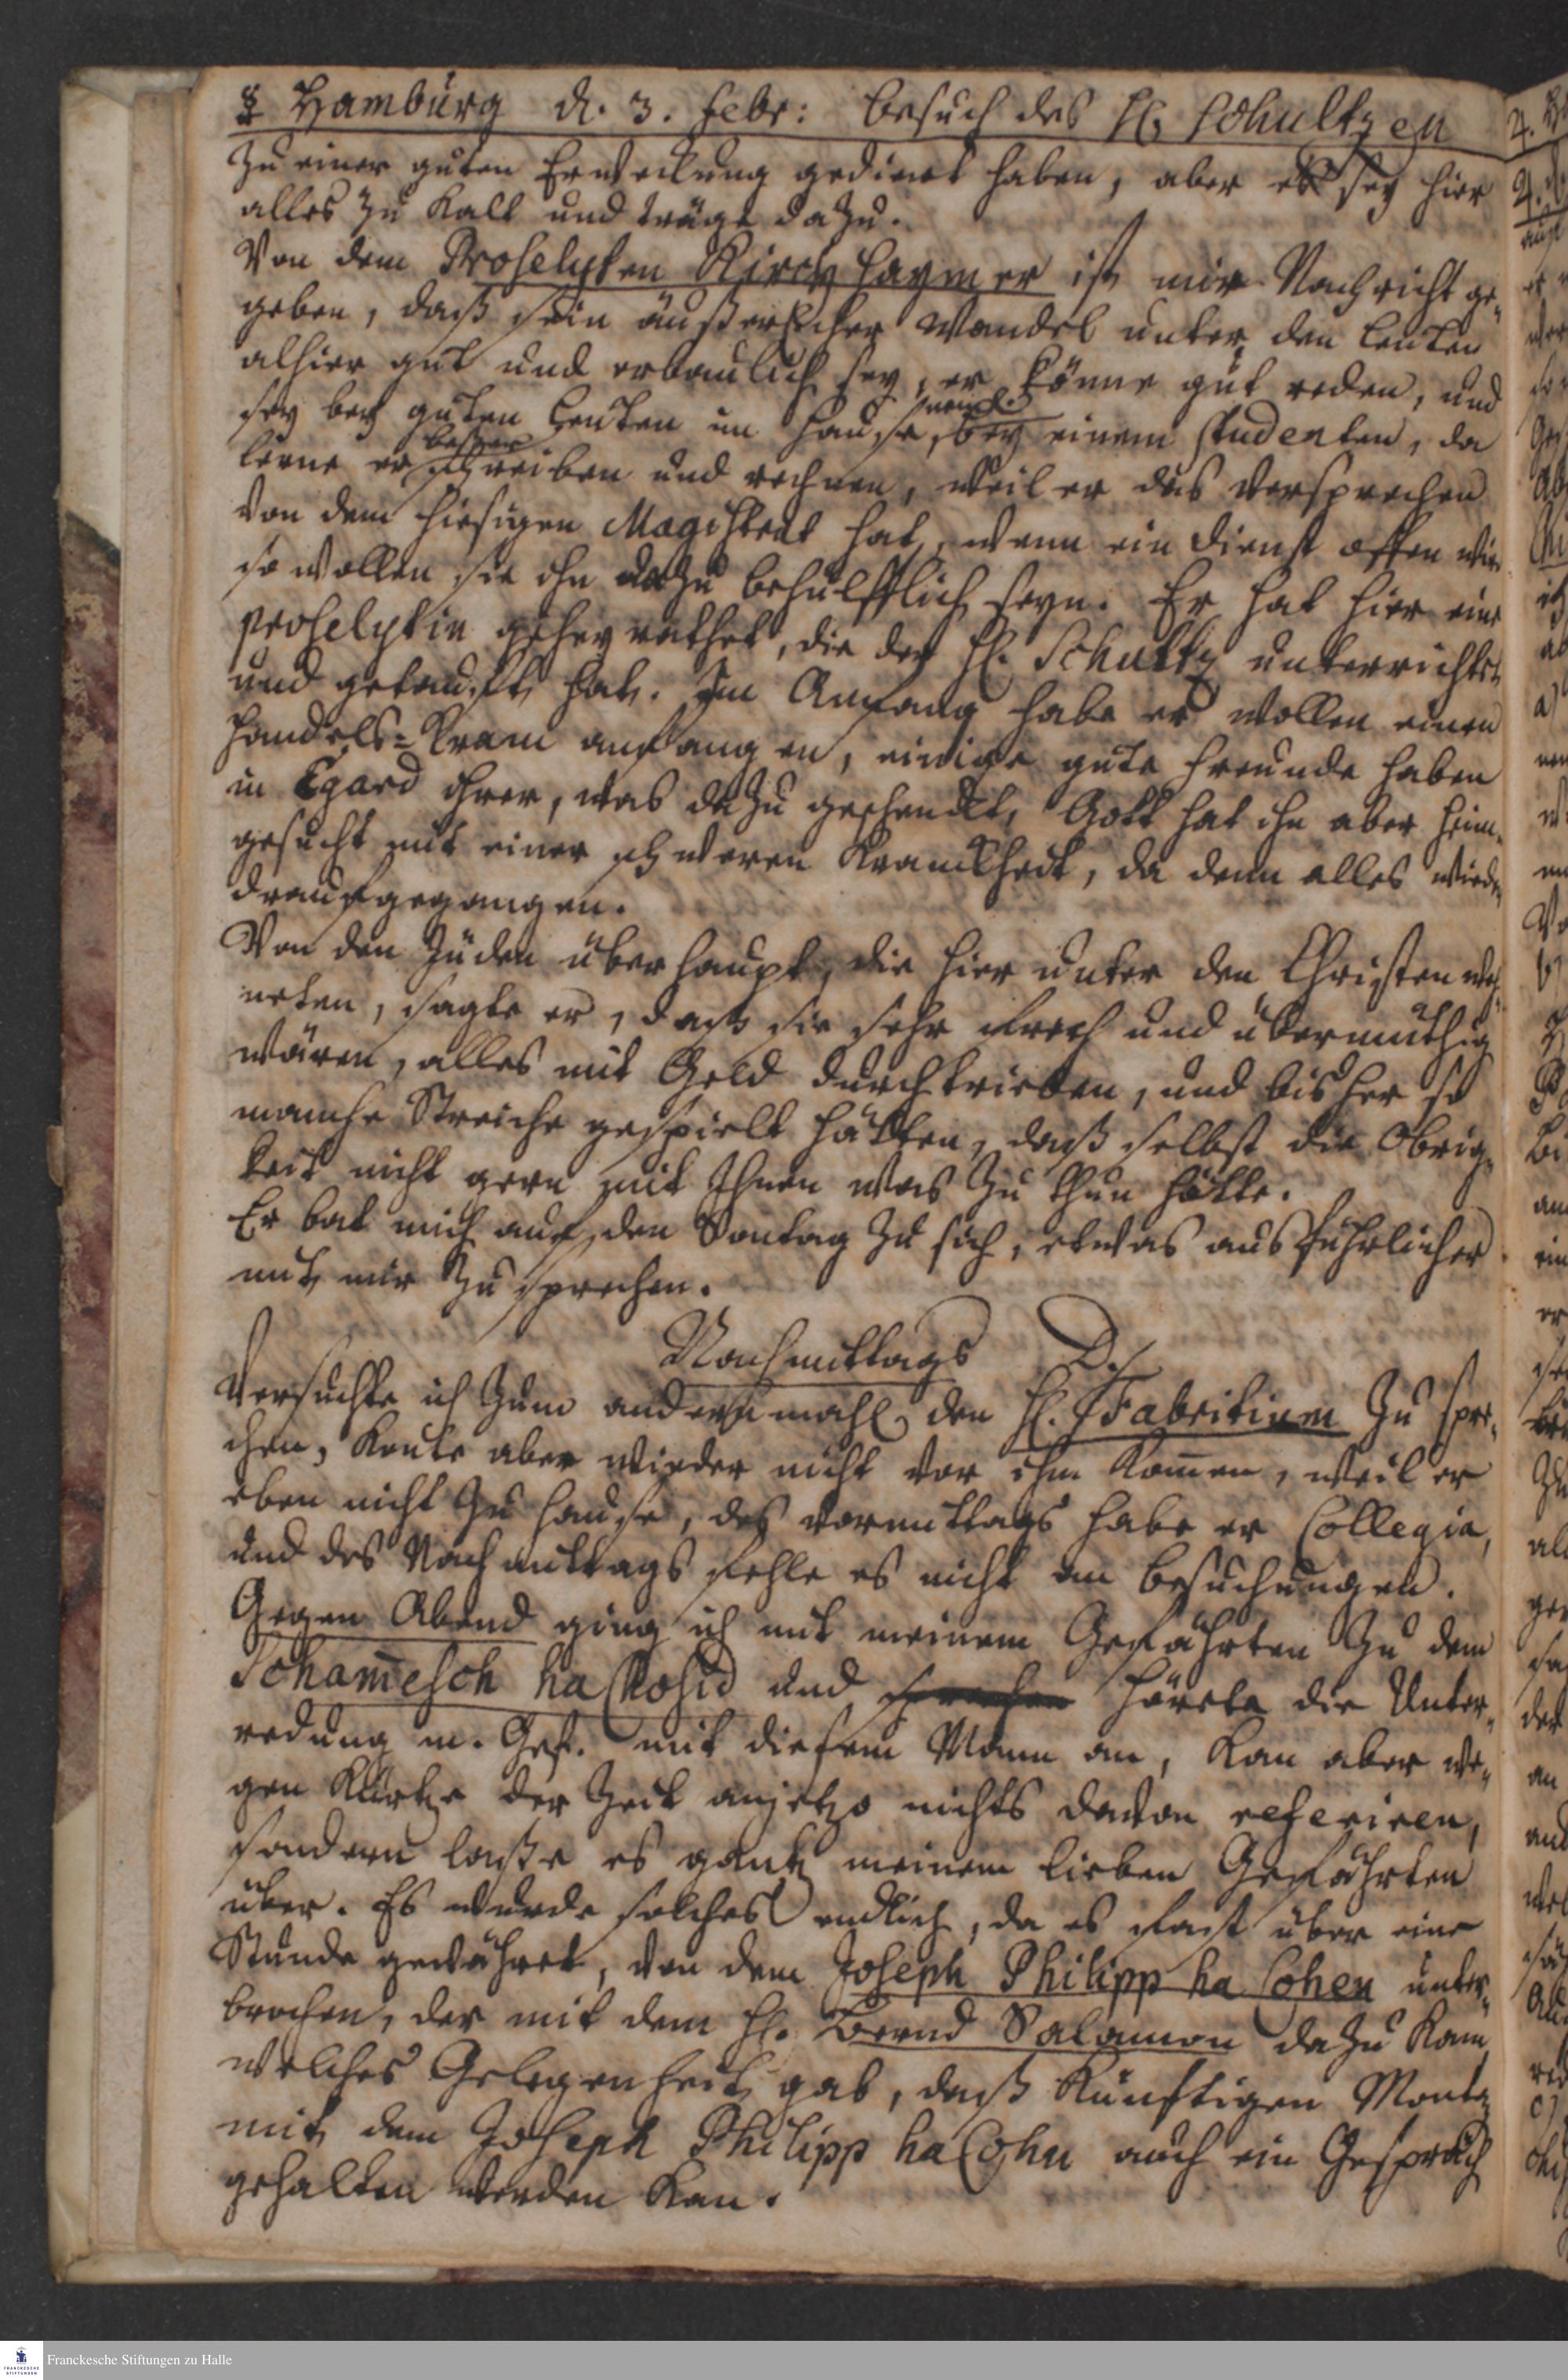 Hamburg d. 3. Febr: Besuch des H. Schultzen
Zu einer guten Erweckung gedient haben, aber es sey hier
alles zu kalt und träge dazu.
Von dem Proselyten Kirchhaymer ist mir Nachricht ge-
geben, daß sein äußerlicher Wandel unter den Leuten
alhier gut und erbaulich sey, er könne gut reden, und
sey bey guten Leuten im Hause, bey einem studenten, da
lerne er besser schreiben und rechnen, weil er das Versprechen
von dem hiesigen Magistrat hat, wenn ein Dienst offen wird
so wollen sie ihn dazu behülfflich seyn. Er hat hier eine
proselytin geheyrathet, die der H. Schultz unterrichtet
und getaufft hat. Im Anfang habe er wollen einen
Handels-Kram anfangen, einige gute Freunde haben
in Egard ihrer, was dazu geschenckt, Gott hat ihn aber heim-
gesucht mit einer schweren Kranckheit, da denn alles wieder
draufgegangen.
Von den Juden überhaupt, die hier unter den Christen woh-
neten, sagte er, daß sie sehr frech und übermüthig
wären, alles mit Geld durchtrieben, und bisher so
manche Streiche gespielt hätten, daß selbst die Obrig-
keit nicht gern mit Ihnen was zu thun hätte.
Er bat mich auf den Sontag zu sich, etwas ausführlicher
mit mir zu sprechen.
Nachmittags
Versuchte ich zum andern mahl den H. D. Fabritium zu spre-
chen, konte aber wieder nicht vor ihm kommen, weil er
eben nicht zu Hause, des vormittags habe er Collegia,
und des Nachmittags fehle es nicht an Besuchungen.
Gegen Abend ging ich mit meinem Gefährten zu dem
Schammesch ha Chosid und hörete die Unter-
redung m. Gef. mit diesem Mann an, kan aber we-
gen Kürtze der Zeit anjetzo nichts davon referiren,
sondern laße es gantz meinem lieben Gefährten
über. Es wurde solches endlich, da es fast über eine
Stunde gewähret, von dem Joseph Philipp ha Cohen unter-
brochen, der mit dem H. Bernd Salamon dazu kam
welches Gelegenheit gab, daß künftigen Montag
mit dem Joseph Philipp ha Cohn auch ein Gespräch
gehalten werden kan.
Franckesche Stiftungen zu Halle